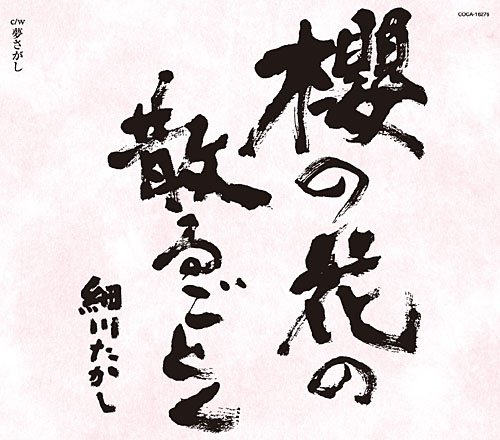 櫻の花の
散るごとく
細川たかし
c/w 夢さがし
COCA-16276